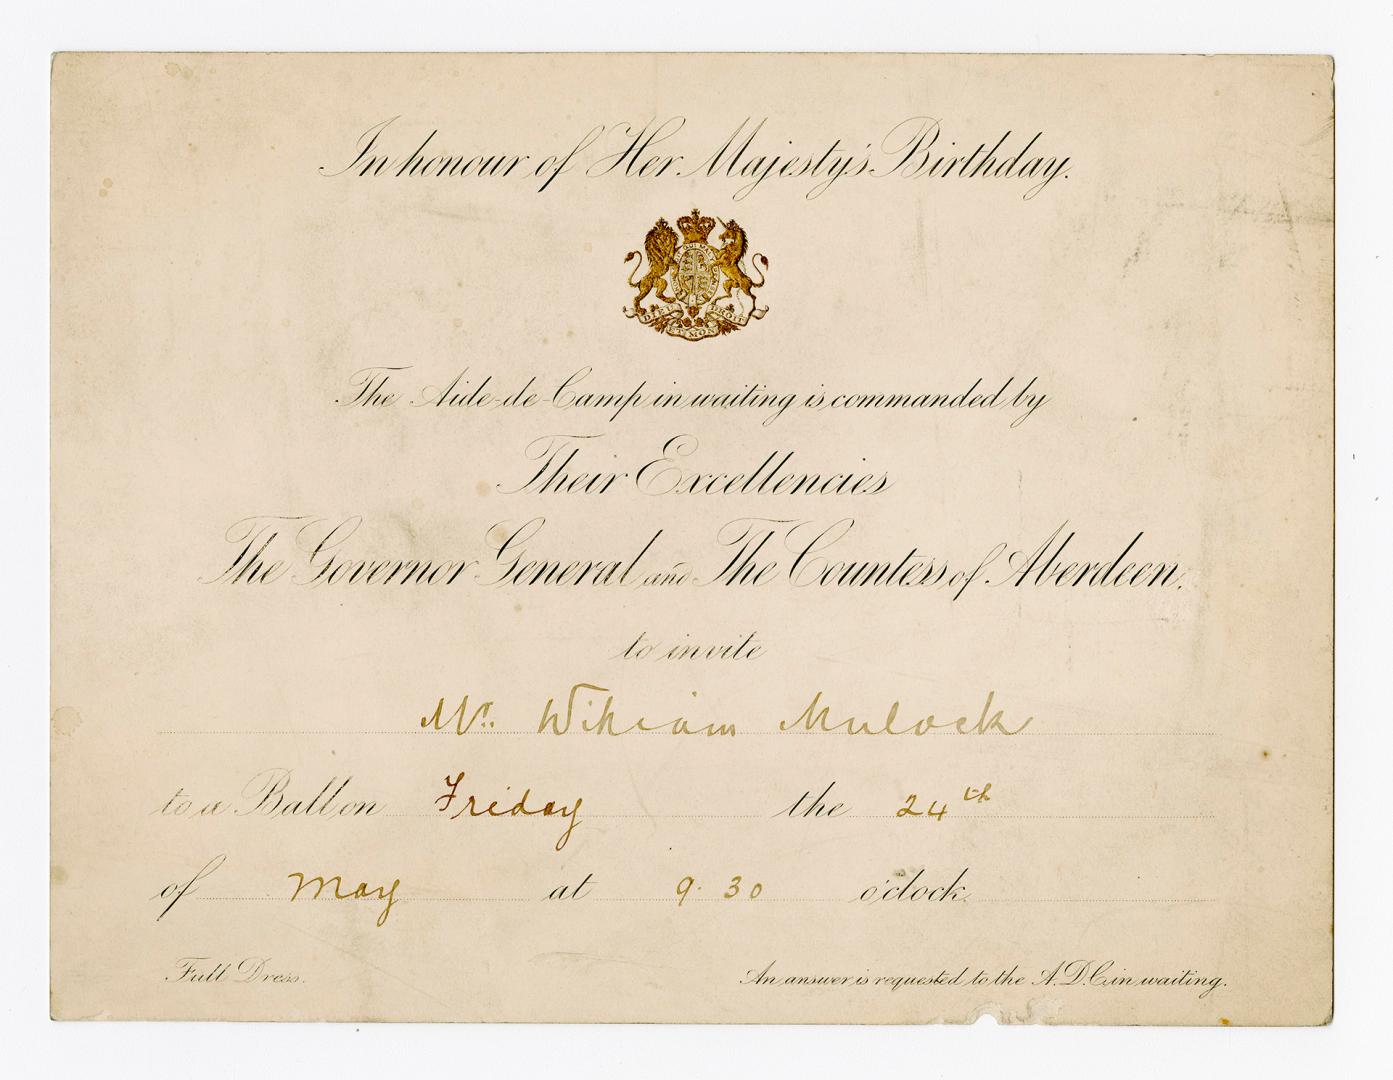 In honour of Her Majesty's Birthday.
DIEU ET MON DROIT
The Aide-de-Camp in waiting is commanded by
Their Excellencies
The Governor General and The Countess of Aberdeen.
to invite
Mr. William Mulock
to a Ball on Friday the 24th
of May at 9.30 o'clock.
Full Dress.
An answer is requested to the A.D.C in waiting.